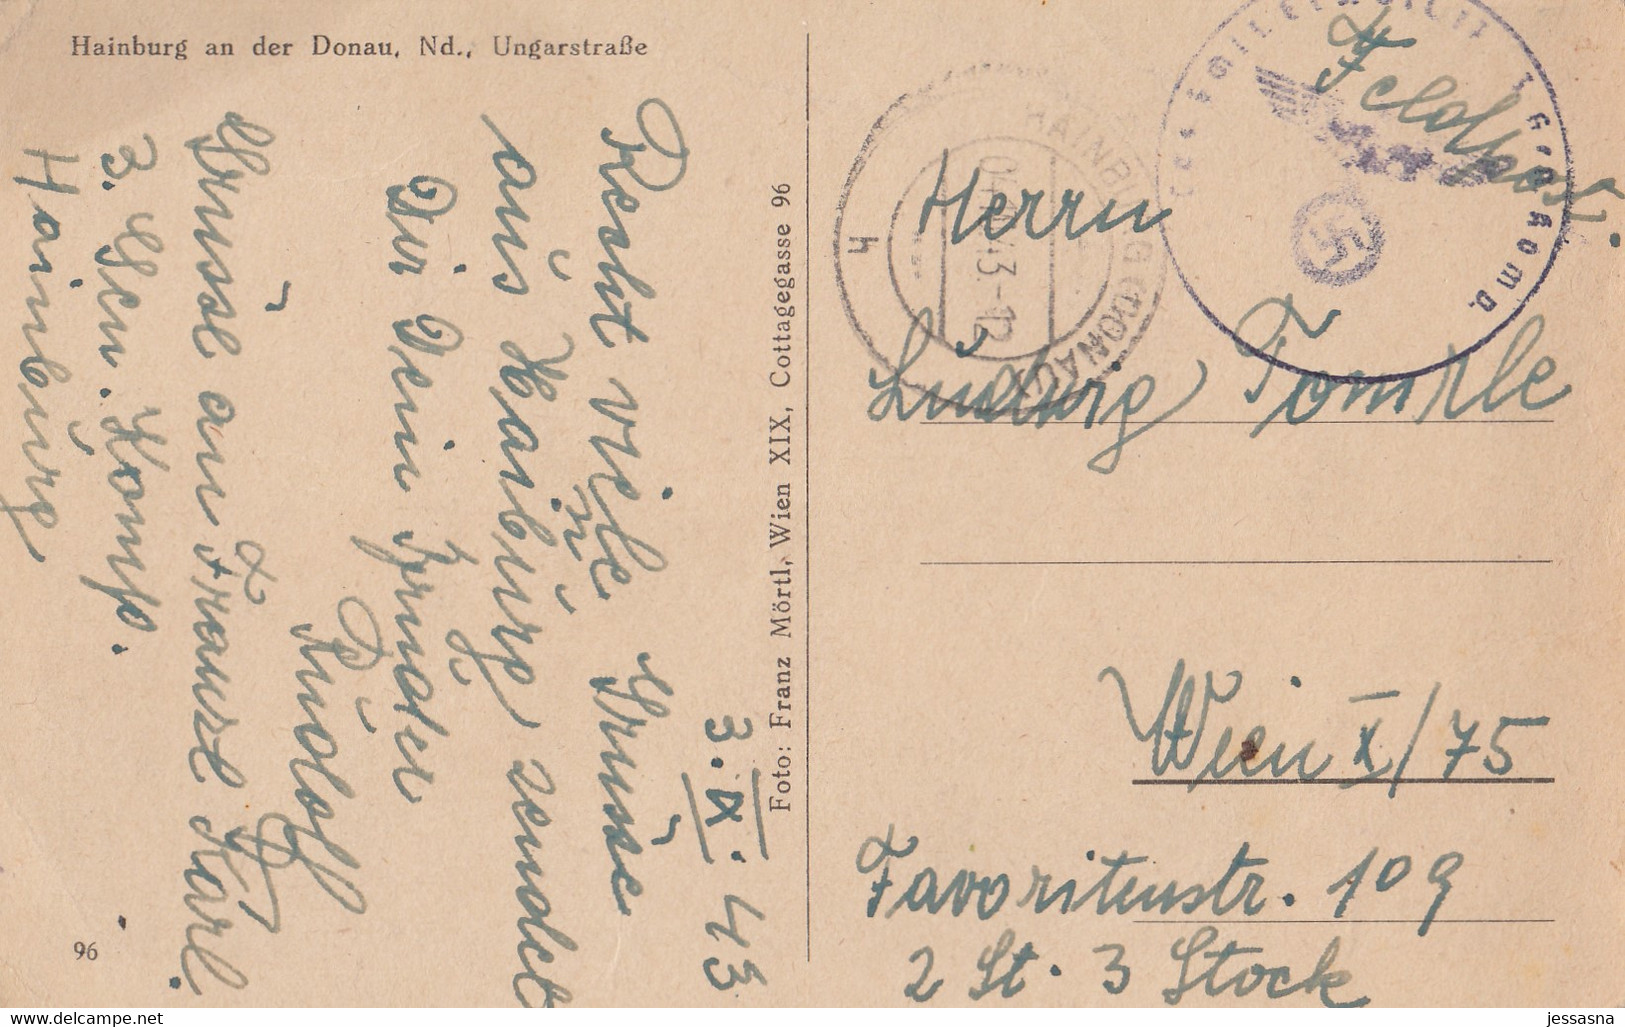 Hainburg an der Donau, Nd., Ungarstraße
3.IX.43
Recht viele Grüsse
aus Hainburg sendet
Dir Dein Bruder
Rudolf
Grüsse an Franzl Karl.
3. Gen. Komp.
Hainburg
96
Foto: Franz Mörtl, Wien XIX, Cottagegasse 96
Feldpost.
HAINBURG (DONAU)
43.-12
h
Herrn
Ludwig
Wien X/75
Favoritenstr. 109
2 St. 3 Stock
jessasna